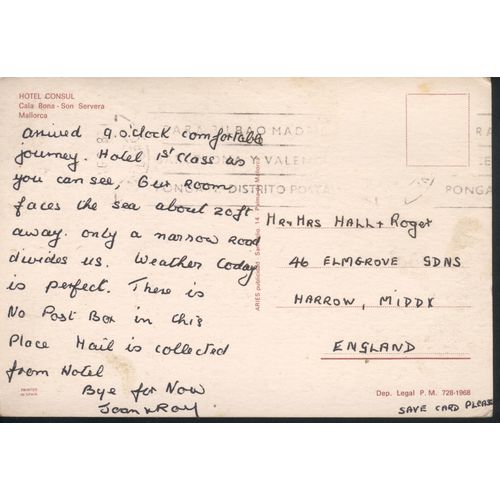 HOTEL CONSUL
Cala Bona - Son Servera
Mallorca
arrived 9.o'clock comfortable
journey. Hotel 1st class as
you can see, Our Room
faces the sea about 20ft
away. only a narrow road
divides us. Weather today
is perfect. There is
No Post Box in this
Place Mail is collected
from Hotel
Bye for Now
Joan & Roy
PRINTED
IN SPAIN
BILBAO MADRID
Y VALEN
DISTRITO POSTAL
PONGA
Mr & Mrs HALL + Roger
46 ELMGROVE GDNS
HARROW, MIDDX
ENGLAND
Dep. Legal P. M. 728-1968
SAVE CARD PLEASE